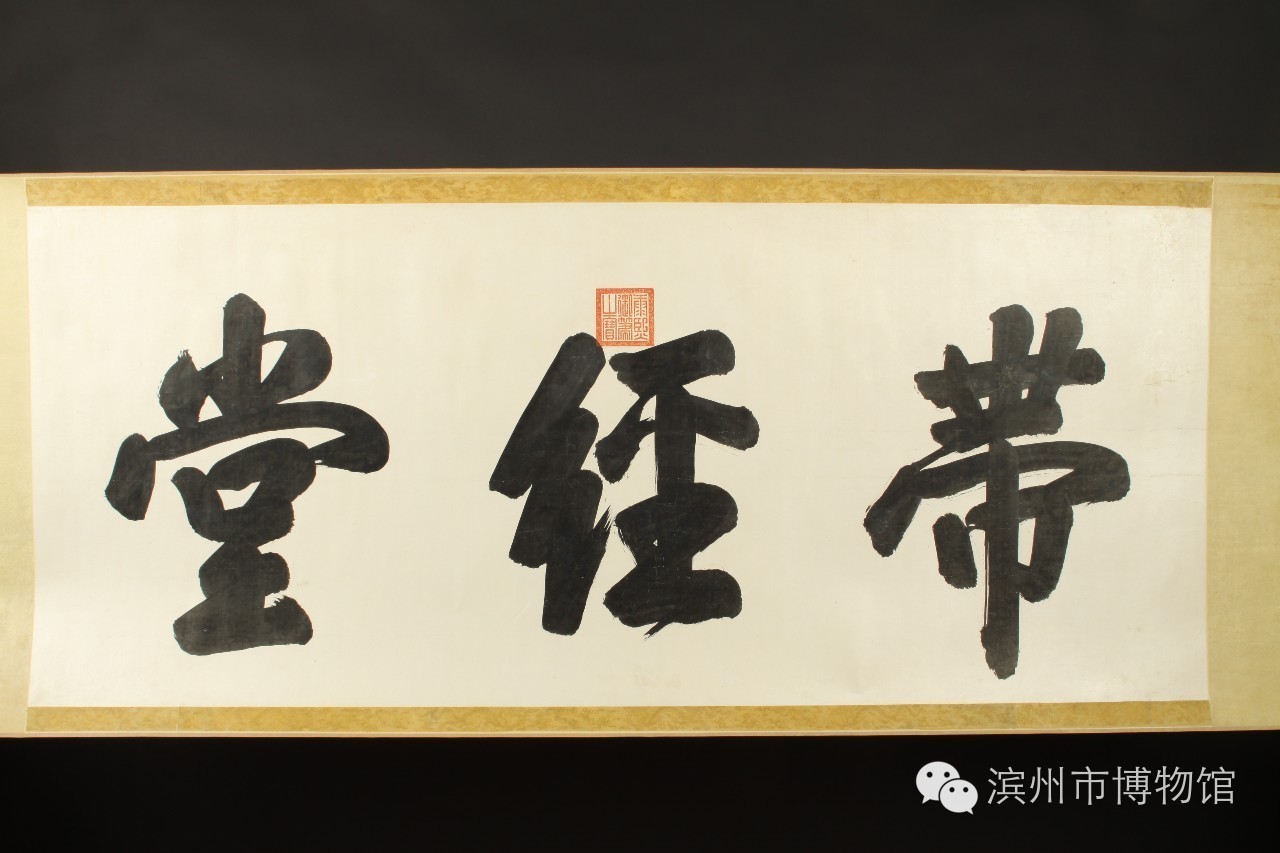 帶經堂
康熙御筆之寶
滨州市博物馆